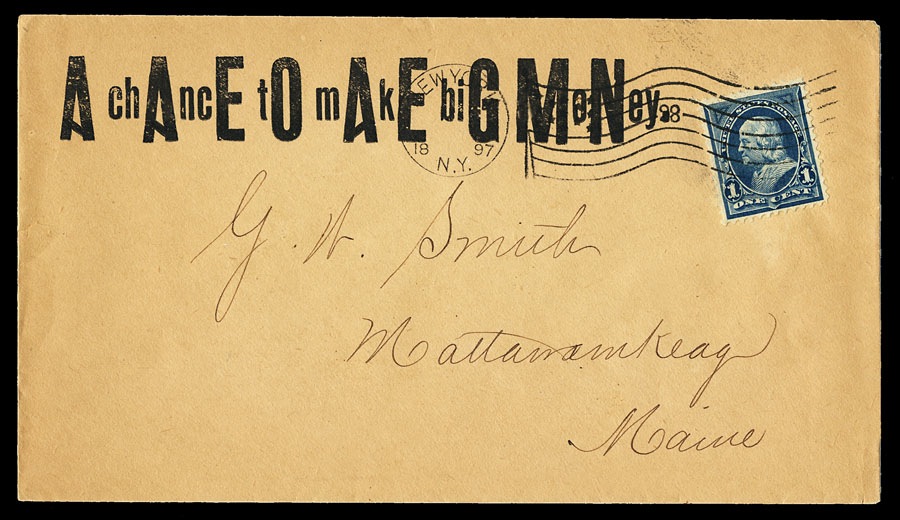 A chAncE tO mAkE biG MoNey.
NEW YORK
18 97
N.Y.
98
1 1
ONE CENT
G. W. Smith
Mattawamkeag
Maine